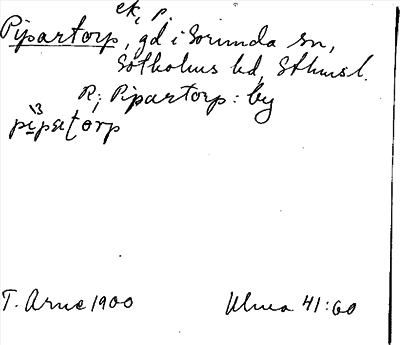 ek, P.
Pipartorp, gd i Sorunda sn,
Sotholms hd, Sthmsl.
R; Pipartorp: by
pìpatorp
T. Arne 1900 Ulma 41:60